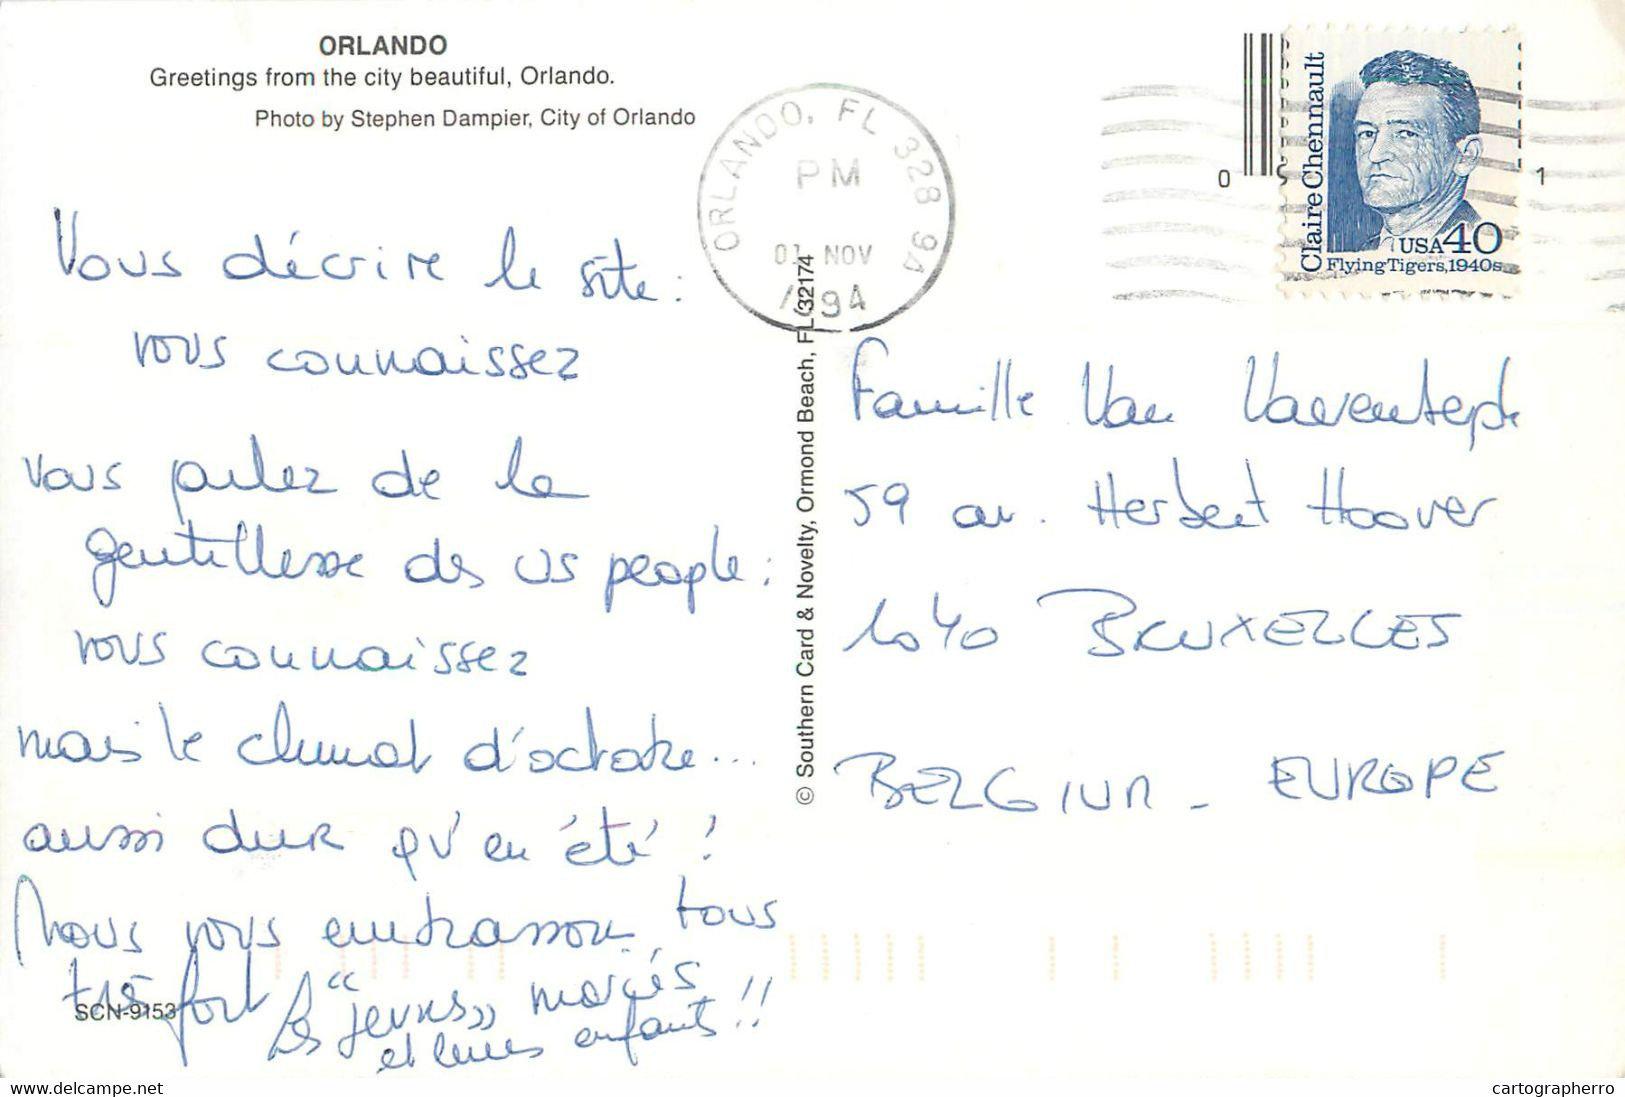 ORLANDO
Greetings from the city beautiful, Orlando.
Photo by Stephen Dampier, City of Orlando
ORLANDO, FL 328 94
PM
01 NOV
1994
0
1
Claire Chennault
USA 40
Flying Tigers, 1940s
Vous décrire le site :
vous connaissez
Vous parlez de la
gentillesse des us people :
vous connaissez
mais le climat d'octobre...
aussi dur qu'en été !
Nous vous embrassons tous
très fort
Les "jeunes" mariés
et leurs enfants !!
SCN-9153
© Southern Card & Novelty, Ormond Beach, FL 32174
Famille Van
59 av. Herbert Hoover
1040 BRUXELLES
BELGIUM - EUROPE
www.delcampe.net
cartographerro